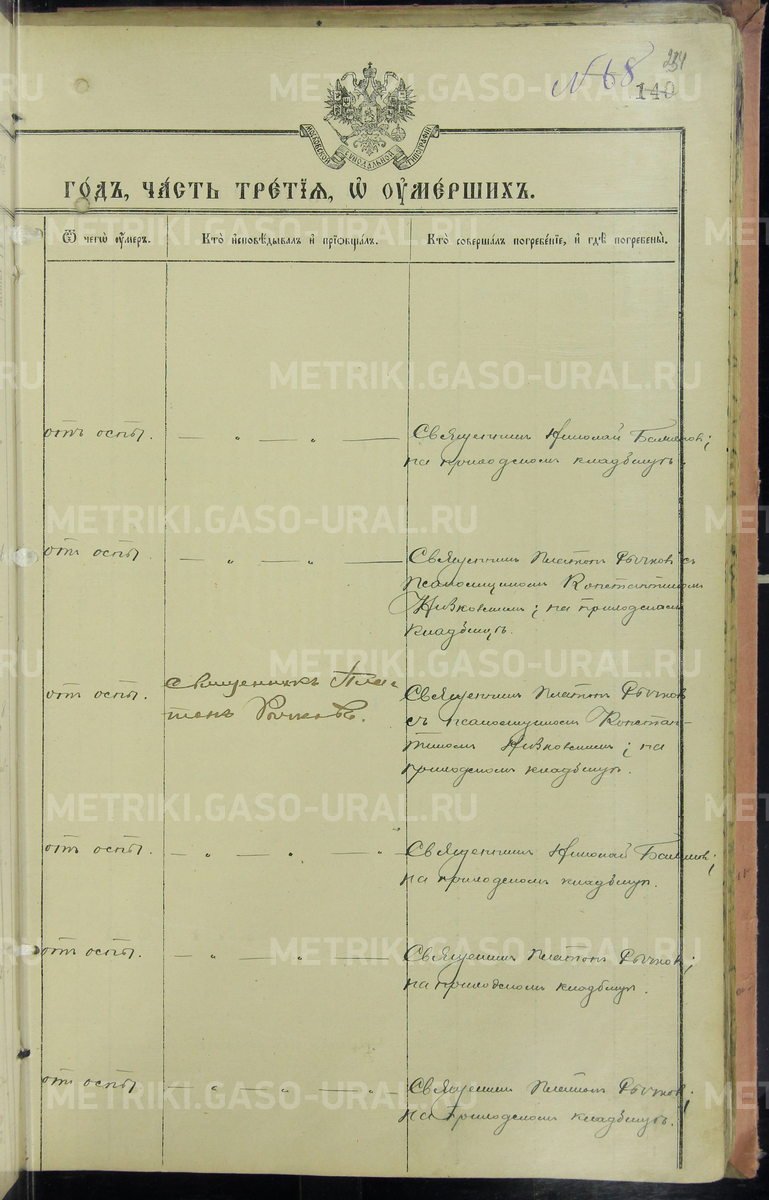 № 68
254
140
МОСКОВСКОЙ СѴНОДАЛЬНОЙ ТИПОГРАФІИ
ГО́ДЪ, ЧА́СТЬ ТРЕ́ТІѦ, Ѡ҆ ОУ҆МЕ́РШИХЪ.
Ѿ чегѡ̀ оу҆́меръ.
Кто̀ и҆сповѣ́дывалъ и҆ прїѡбща́лъ.
Кто̀ соверша́лъ погребе́нїе, и҆ гдѣ̀ погребены̀.
отъ оспы.
— „ — „ —
Священникъ Николай
на приходскомъ кладбищѣ.
отъ оспы.
— „ — „ —
Священникъ Платонъ Рычковъ съ
псаломщикомъ Константиномъ
Низковскимъ; на приходскомъ
кладбищѣ.
отъ оспы.
Священникъ Пла-
тонъ Рычковъ.
Священникъ Платонъ Рычковъ
съ псаломщикомъ Констан-
тиномъ Низковскимъ; на
приходскомъ кладбищѣ.
отъ оспы.
— „ — „ — „
Священникъ Николай
на приходскомъ кладбищѣ.
отъ оспы.
— „ — „ —
Священникъ Платонъ Рычковъ;
на приходскомъ кладбищѣ.
отъ оспы
— „ — „ — „
Священникъ Платонъ Рычковъ;
на приходскомъ кладбищѣ.
METRIKI.GASO-URAL.RU